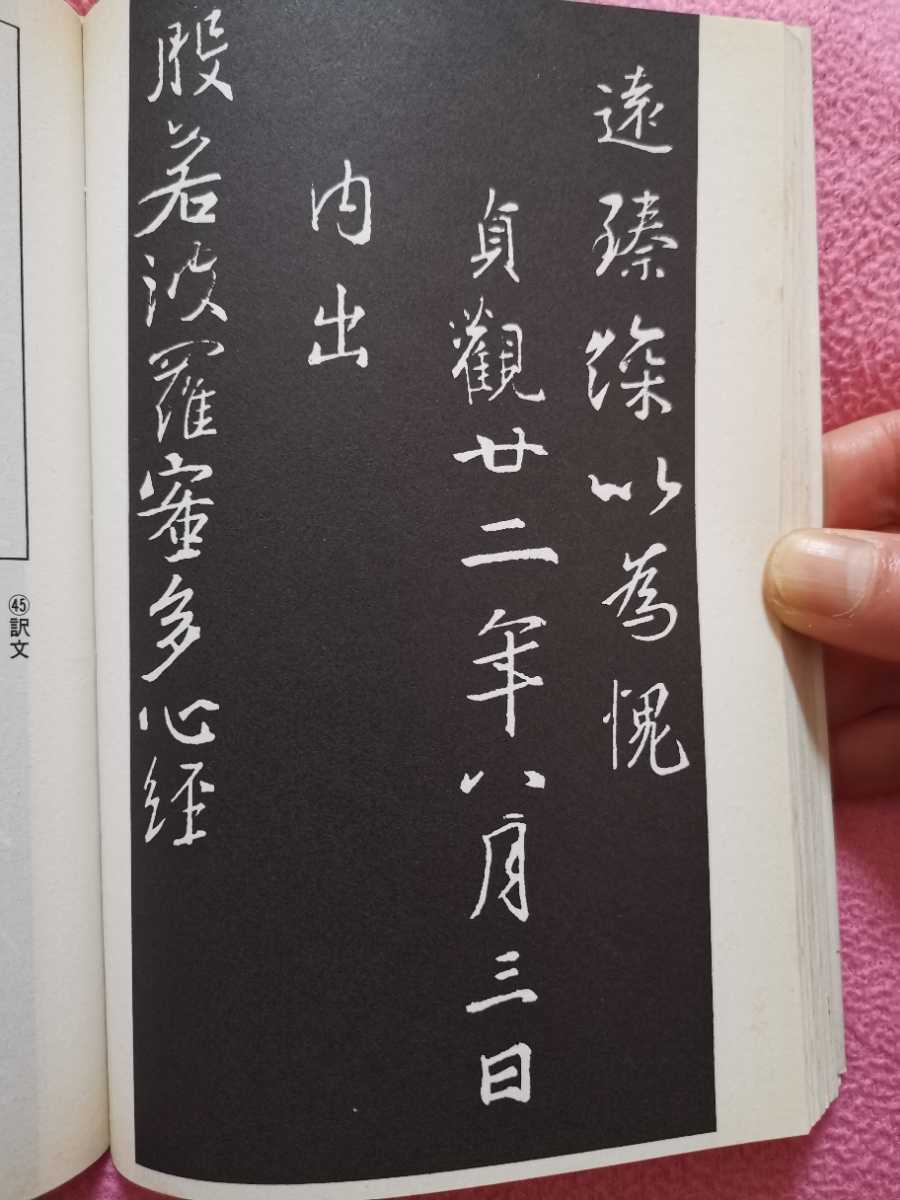 遠臻深以為愧
貞觀廿二年八月三日
内出
般若波羅蜜多心経
㊺訳文